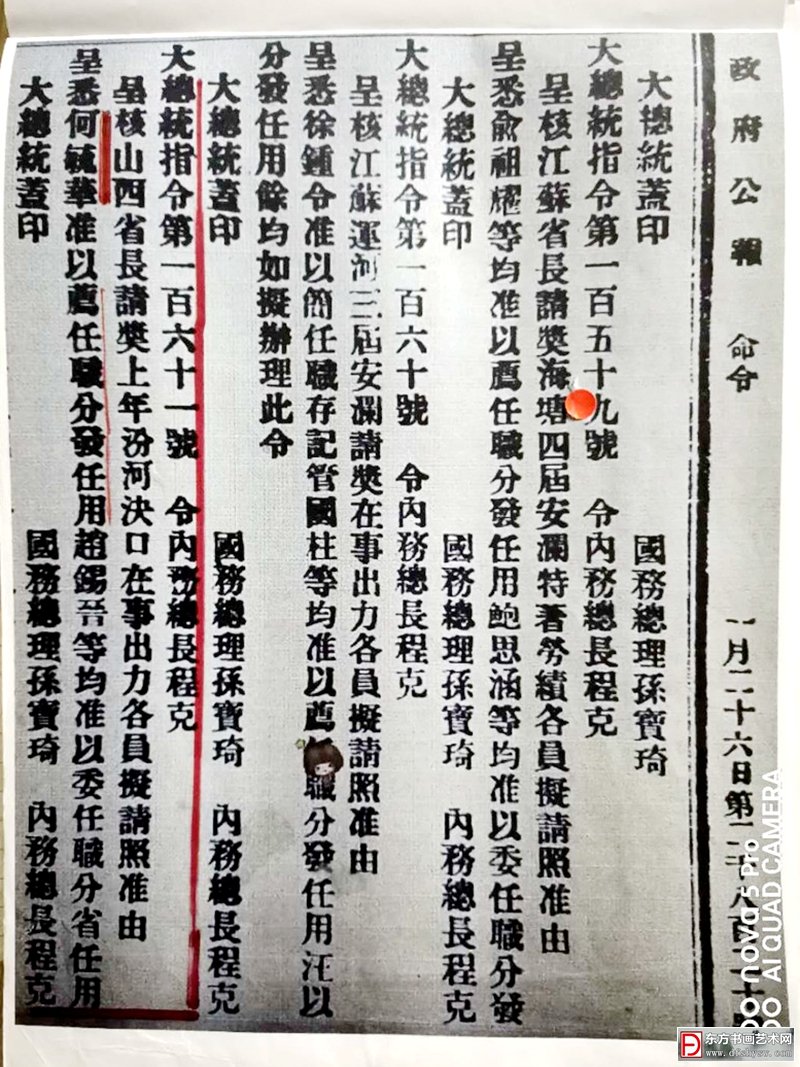 政府公報 命令
月二十六日第二千八百二十
大總統蓋印 國務總理孫寶琦
大總統指令第一百五十九號 令內務總長程克
呈核江蘇省長請獎海塘四屆安瀾特著勞績各員擬請照准由
呈悉俞祖燿等均准以薦任職分發任用鮑思涵等均准以委任職分發
大總統蓋印 國務總理孫寶琦 內務總長程克
大總統指令第一百六十號 令內務總長程克
呈核江蘇運河三屆安瀾請獎在事出力各員擬請照准由
呈悉徐鍾令准以簡任職存記管國柱等均准以薦職分發任用汪以
分發任用餘均如擬辦理此令
大總統蓋印 國務總理孫寶琦 內務總長程克
大總統指令第一百六十一號 令內務總長程克
呈核山西省長請獎上年汾河決口在事出力各員擬請照准由
呈悉何毓華准以薦任職分發任用趙錫晉等均准以委任職分省任用
大總統蓋印 國務總理孫寶琦 內務總長程克
nova 5 Pro
AI QUAD CAMERA
东方书画艺术网
www.dfshysw.com